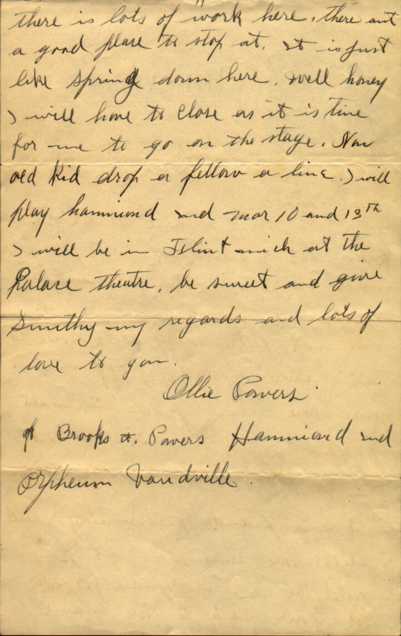 there is lots of work here. there aint
a good place to stop at. it is just
like spring down here. well honey
I will have to close as it is time
for me to go on the stage. Now
old Kid drop a fellow a line I will
play hammond ind mar 10 and 13th
I will be in Flint mich at the
Palace theatre. be sweet and give
Smithy my regards and lots of
love to you.
Ollie Powers.
of Brooks &. Powers Hammond ind
Orpheum Vaudville.